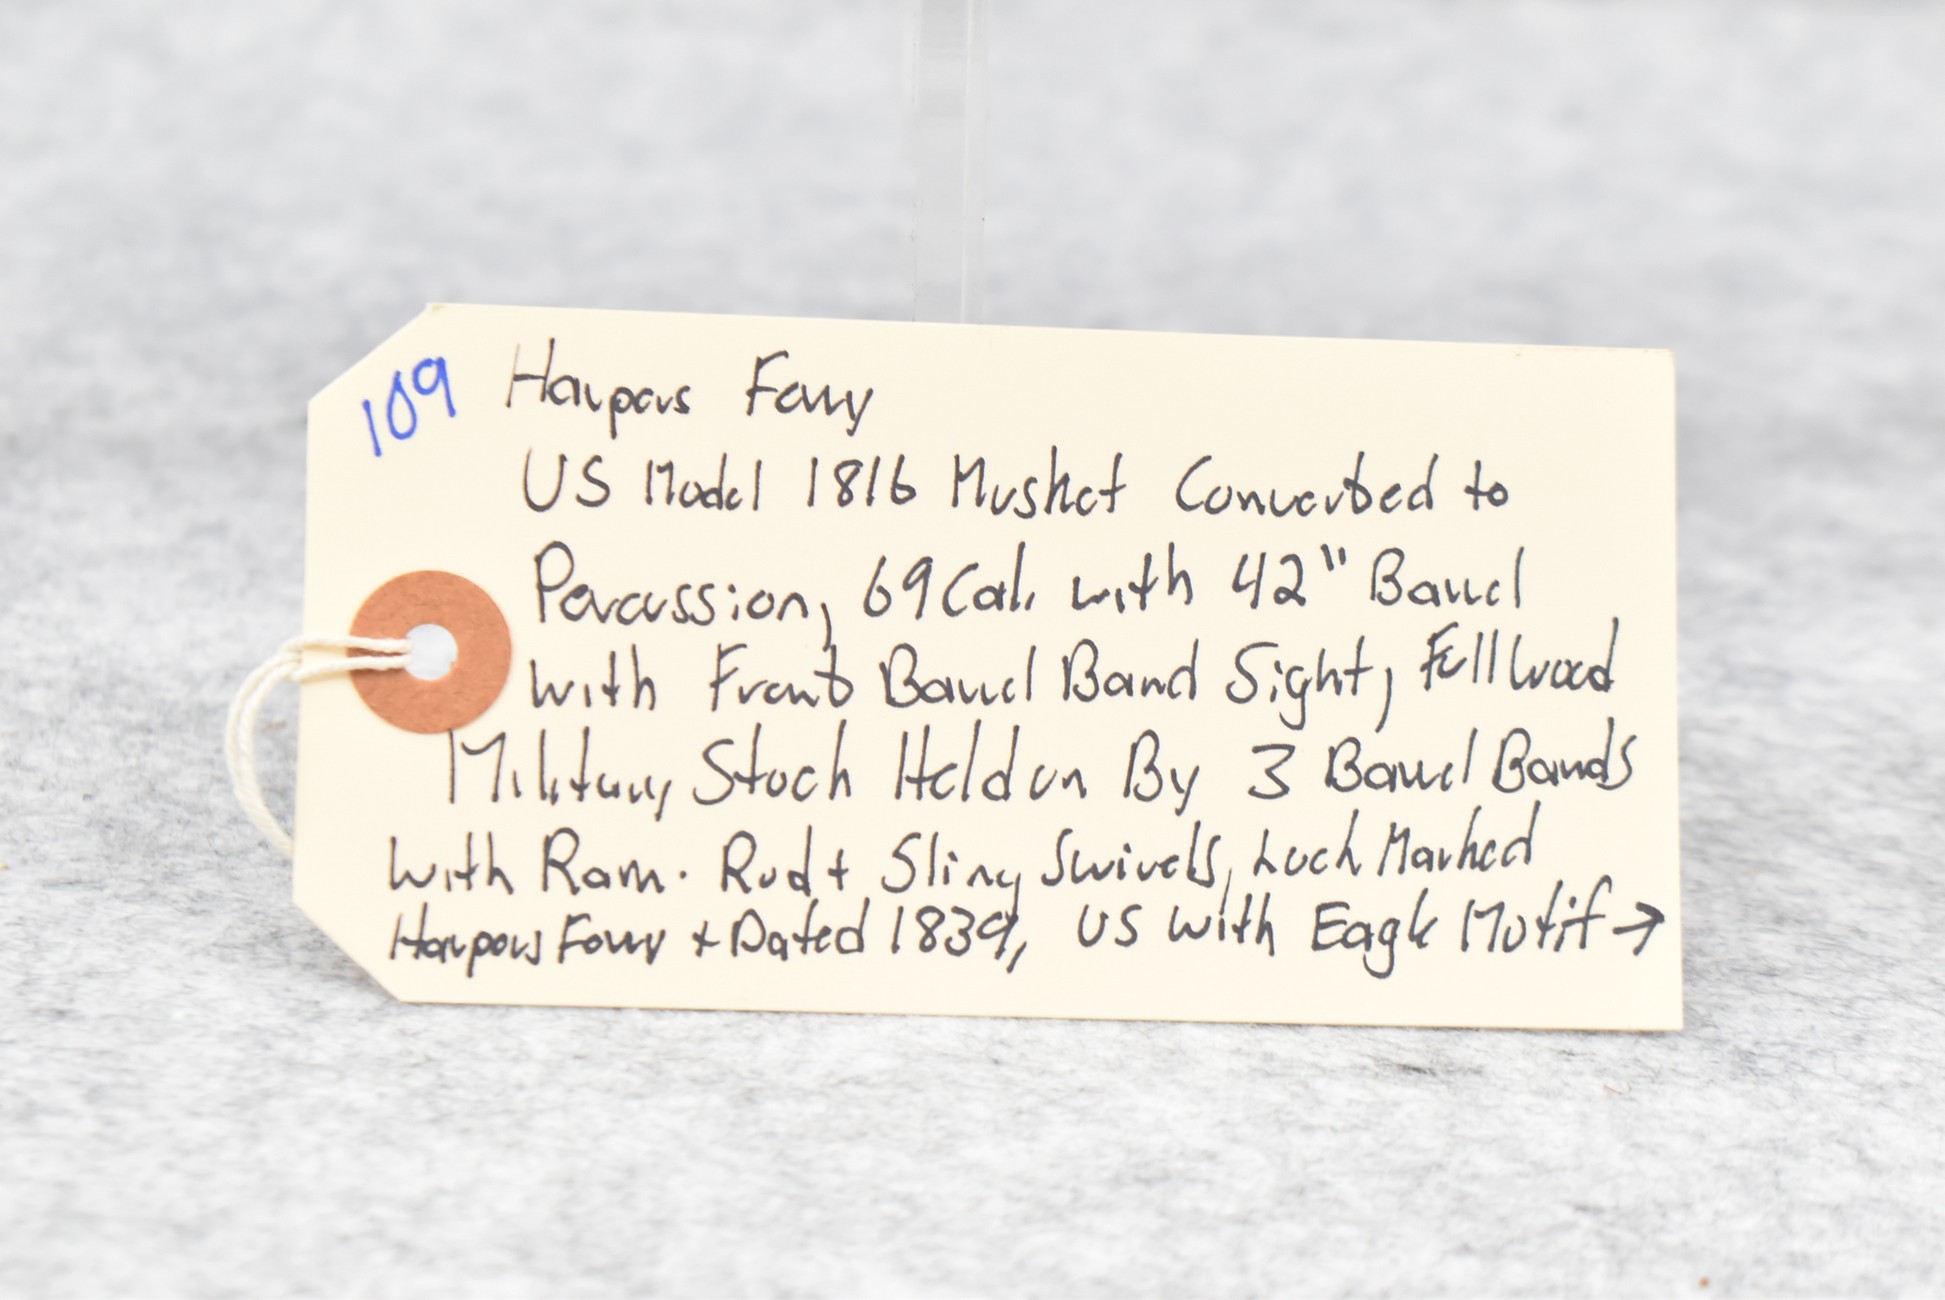 109
Harpers Ferry
US Model 1816 Musket Converted to
Percussion, 69 Cal. with 42" Barrel
with Front Barrel Band Sight, Full Wood
Military Stock Held on By 3 Barrel Bands
with Ram. Rod + Sling Swivels, Lock Marked
Harpers Ferry + Dated 1839, US with Eagle Motif →